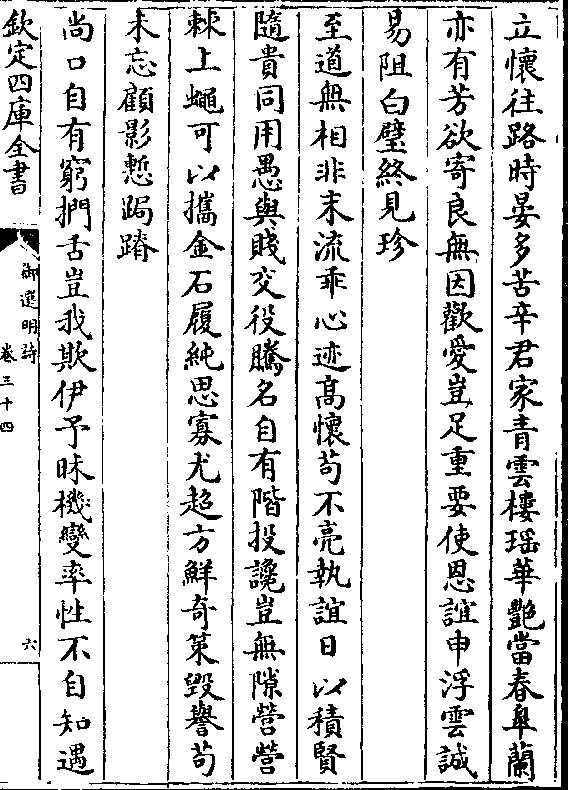 立懷往路時晏多苦辛君家青雲樓瑶華艷當春臯蘭
亦有芳欲寄良無因歡愛豈足重要使恩誼申浮雲誠
易阻白璧終見珍
至道無相非末流乖心迹高懷苟不亮執誼日以積賢
隨貴同用愚與賤交役騰名自有階投讒豈無隙營營
棘上蠅可以攜金石履純思寡尤超方鮮奇策毀譽苟
未忘顧影慙跼蹐
尚口自有窮捫舌豈我欺伊予昧機變率性不自知遇
欽定四庫全書
御選明詩
卷三十四
六